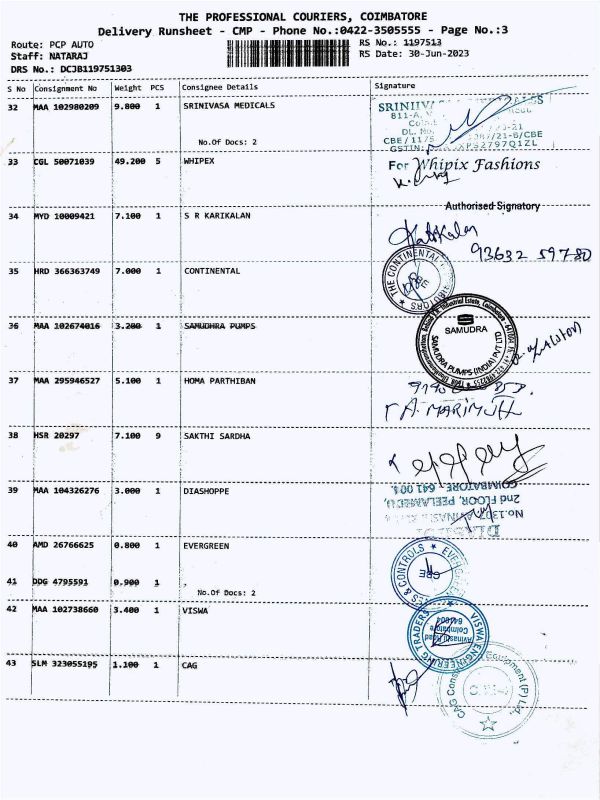 THE PROFESSIONAL COURIERS, COIMBATORE
Delivery Runsheet - CMP - Phone No.:0422-3505555 - Page No.:3
Route: PCP AUTO RS No.: 1197513
Staff: NATARAJ RS Date: 30-Jun-2023
DRS No.: DCJB119751303
S No Consignment No Weight PCS Consignee Details Signature
32 MAA 102980209 9.800 1 SRINIVASA MEDICALS
No.Of Docs: 2
33 CGL 50071039 49.200 5 WHIPEX
For Whipix Fashions
Authorised Signatory
34 MYD 10009421 7.100 1 S R KARIKALAN
93632 59780
35 HRD 366363749 7.000 1 CONTINENTAL
THE CONTINENTAL
36 MAA 102674016 3.200 1 SAMUDHRA PUMPS
SAMUDRA
SAMUDRA PUMPS (INDIA) PVT LTD
37 MAA 295946527 5.100 1 HOMA PARTHIBAN
38 HSR 20297 7.100 9 SAKTHI SARDHA
39 MAA 104326276 3.000 1 DIASHOPPE
2nd FLOOR, PEELAMEDU,
COIMBATORE - 641 004.
40 AMD 26766625 0.800 1 EVERGREEN
41 DDG 4795591 0.900 1
No.Of Docs: 2
& CONTROLS
CBE
42 MAA 102738660 3.400 1 VISWA
VISWA ENGINEERING TRADERS
Avinashi Road
Coimbatore
641004
43 SLM 323055195 1.100 1 CAG
Equipment (P) Ltd.,